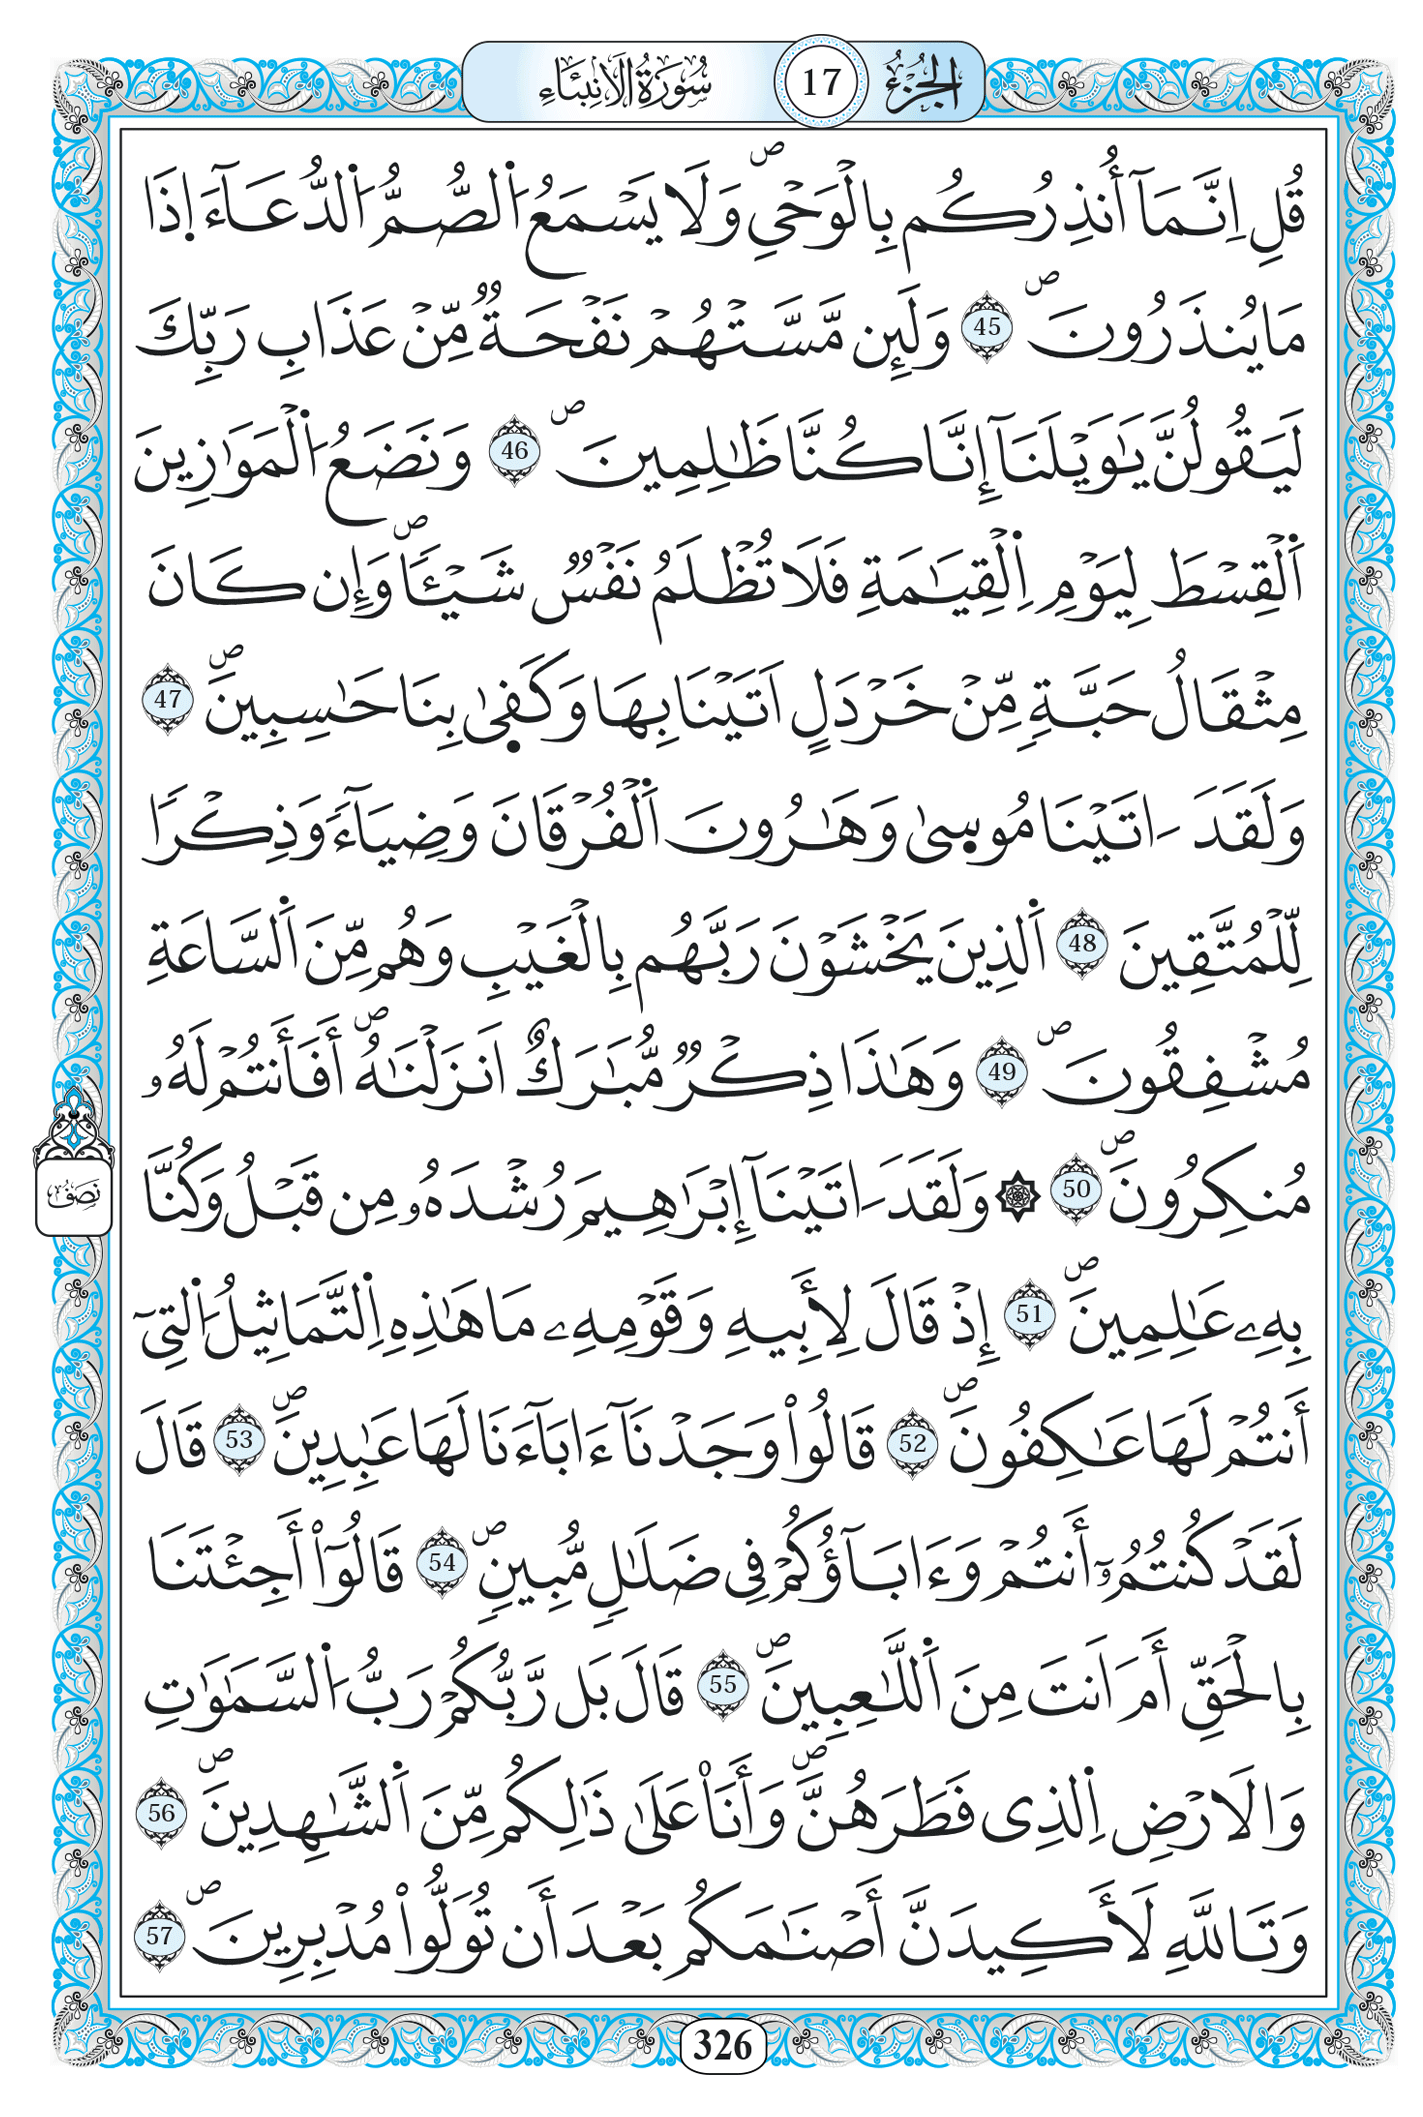 سُورَةُ الَانبِئَاءِ 17 الجُزْءُ
قُلِ اِنَّمَآ أُنذِرُكُم بِالْوَحْيِۖ وَلَا يَسْمَعُ اُ۬لصُّمُّ اُ۬لدُّعَآءَ اِذَا
مَا يُنذَرُونَۖ 45 وَلَئِن مَّسَّتْهُمْ نَفْحَةٞ مِّنْ عَذَابِ رَبِّكَ
لَيَقُولُنَّ يَٰوَيْلَنَآ إِنَّا كُنَّا ظَٰلِمِينَۖ 46 وَنَضَعُ اُ۬لْمَوَٰزِينَ
اَ۬لْقِسْطَ لِيَوْمِ اِ۬لْقِيَٰمَةِ فَلَا تُظْلَمُ نَفْسٞ شَيْـٔاٗۖ وَإِن كَانَ
مِثْقَالُ حَبَّةٖ مِّنْ خَرْدَلٍ اَتَيْنَا بِهَا وَكَف۪ىٰ بِنَا حَٰسِبِينَۖ 47
وَلَقَدَ اٰتَيْنَا مُوس۪ىٰ وَهَٰرُونَ اَ۬لْفُرْقَانَ وَضِيَآءٗ وَذِكْراٗ
لِّلْمُتَّقِينَ 48 اَ۬لذِينَ يَخْشَوْنَ رَبَّهُم بِالْغَيْبِ وَهُم مِّنَ اَ۬لسَّاعَةِ
مُشْفِقُونَۖ 49 وَهَٰذَا ذِكْرٞ مُّبَٰرَكٌ اَنزَلْنَٰهُۖ أَفَأَنتُمْ لَهُۥ
مُنكِرُونَۖ 50 ۞ وَلَقَدَ اٰتَيْنَآ إِبْرَٰهِيمَ رُشْدَهُۥ مِن قَبْلُ وَكُنَّا
بِهِۦ عَٰلِمِينَۖ 51 إِذْ قَالَ لِأَبِيهِ وَقَوْمِهِۦ مَا هَٰذِهِ اِ۬لتَّمَاثِيلُ اُ۬لتِےٓ
أَنتُمْ لَهَا عَٰكِفُونَۖ 52 قَالُواْ وَجَدْنَآ ءَابَآءَنَا لَهَا عَٰبِدِينَۖ 53 قَالَ
لَقَدْ كُنتُمُۥٓ أَنتُمْ وَءَابَآؤُكُمْ فِى ضَلَٰلٖ مُّبِينٖۖ 54 قَالُوٓاْ أَجِئْتَنَا
بِالْحَقِّ أَمَ اَنتَ مِنَ اَ۬للَّٰعِبِينَۖ 55 قَالَ بَل رَّبُّكُمْ رَبُّ اُ۬لسَّمَٰوَٰتِ
وَالَارْضِ اِ۬لذِى فَطَرَهُنَّۖ وَأَنَا۠ عَلَىٰ ذَٰلِكُم مِّنَ اَ۬لشَّٰهِدِينَۖ 56
وَتَاللَّهِ لَأَكِيدَنَّ أَصْنَٰمَكُم بَعْدَ أَن تُوَلُّواْ مُدْبِرِينَۖ 57
نصف
326